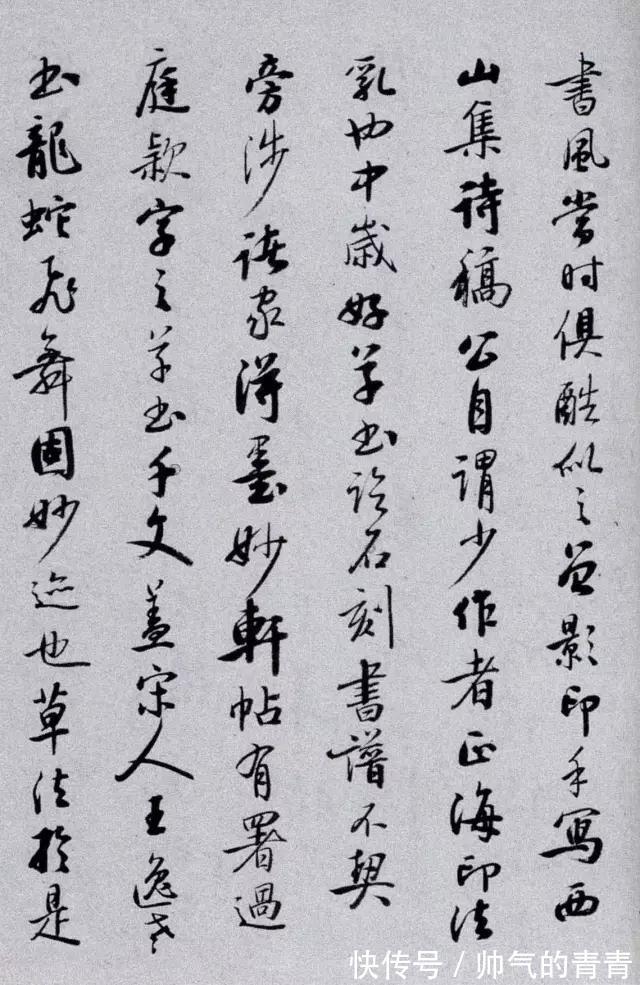 書風當时俱酷似之曾影印手寫西
山集诗稿公自謂少作者正海印法
乳也中歲好草书论石刻書譜不契
旁涉诸家得墨妙軒帖有署過
庭款字之草书千文盖宋人王逸老
书龍蛇飛舞固妙迹也草法於是
快传号/帅气的青青